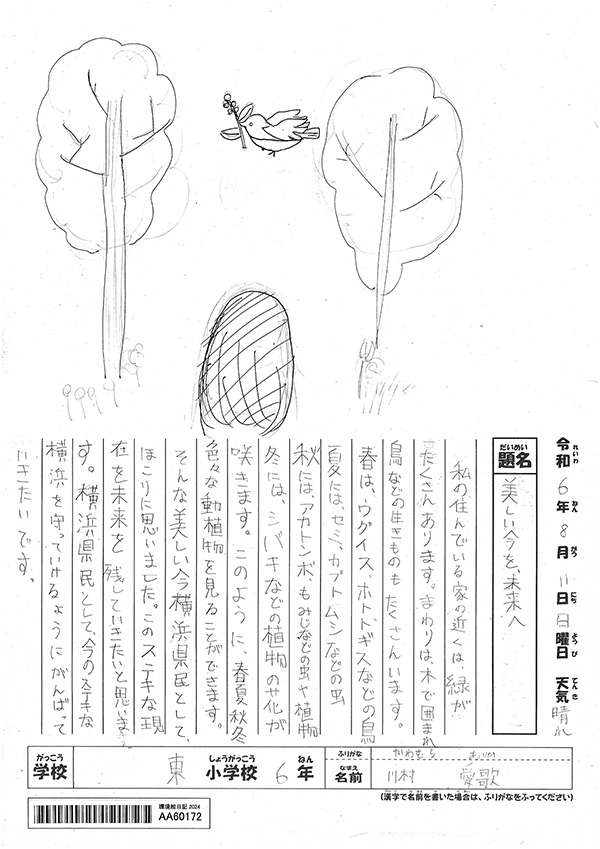 令和6年8月11日日曜日 天気 晴れ
れいわ ねん がつ にち ようび てんき
題名 美しい今を、未来へ
だいめい
私の住んでいる家の近くは、緑が
たくさんあります。まわりは、木で囲まれ
鳥などの生きものもたくさんいます。
春は、ウグイス、ホトトギスなどの鳥
夏には、セミ、カブトムシなどの虫
秋には、アカトンボ、もみじなどの虫や植物
冬には、シバキなどの植物の花が
咲きます。このように、春夏秋冬
色々な動植物を見ることができます。
そんな美しい今横浜県民として、
ほこりに思いました。このステキな現
在を未来を 残していきたいと思います
す。横浜県民として、今のステキな
横浜を守っていけるようにがんばって
いきたいです。
がっこう しょうがっこう ねん ふりがな かわむら あいか
学校 東 小学校 6年 名前 川村 愛歌
なまえ
(漢字で名前を書いた場合は、ふりがなをふってください)
環境絵日記2024
AA60172